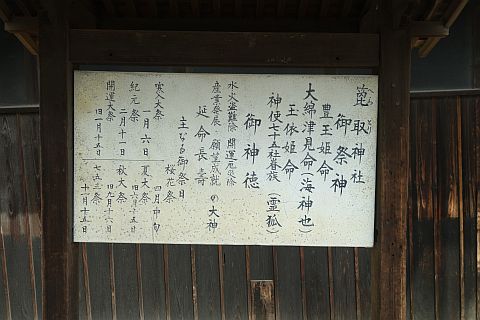 取神社
御祭神
豊玉姫命
大綿津見命(海神也)
玉依姫命
神使七十五社眷族(霊狐)
御神徳
水火盗難除 開運厄除
産業発展・願望成就 の大神
延命長寿
主なる御祭日
寒大祭
一月六日
紀元祭
二月十一日
開運大祭
旧一月十五日
桜花祭
四月中旬
夏大祭
旧六月十五日
秋大祭
旧九月十六日
七五三祭
十一月十五日